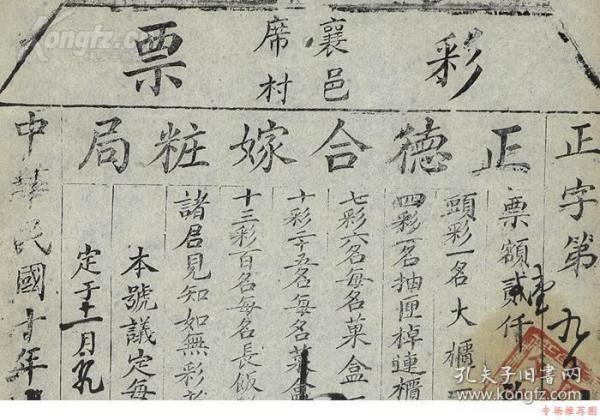 彩票
襄邑
席村
正德合嫁粧局
正字第
票額貳仟
頭彩一名大櫃
四彩二名抽匣棹連櫃
七彩六名每名菓盒一
十彩二十五名每名菓盒
十三彩百名每名長飯
諸君見知如無彩
本號議定每
定于十一月九
中華民國十年
Kongfz.com
孔夫子旧书网
www.kongfz.com
专场推荐图